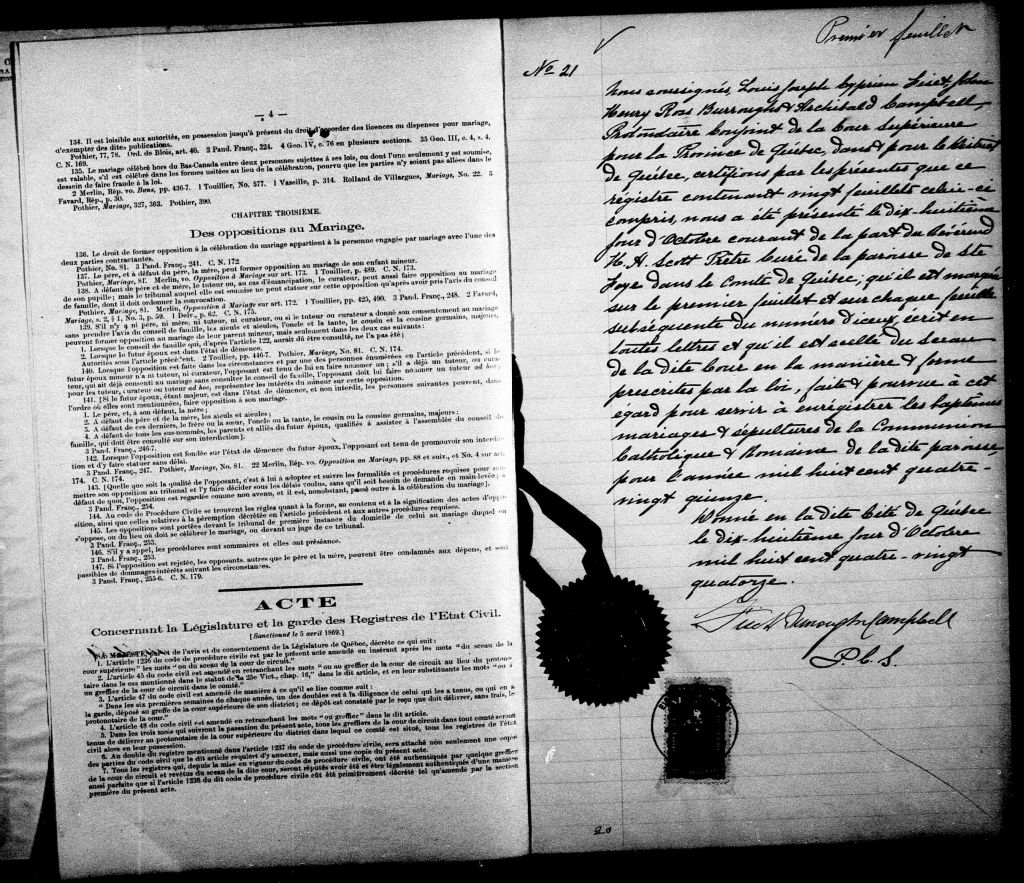 — 4 —
134. Il est loisible aux autorités, en possession jusqu'à présent du droit d'accorder des licences ou dispenses pour mariage,
d'exempter des dites publications.
Pothier, 77, 78. Ord. de Blois, art. 40. 2 Pand. Franç., 324. 4 Geo. IV, c. 76 en plusieurs sections. 35 Geo. III, c. 4, s. 4.
C. N. 169.
135. Le mariage célébré hors du Bas-Canada entre deux personnes sujettes à ses lois, ou dont l'une seulement y est soumise,
est valable, s'il est célébré dans les formes usitées au lieu de la célébration, pourvu que les parties n'y soient pas allées dans le
dessein de faire fraude à la loi.
2 Merlin, Rép. vo. Bans, pp. 436-7. 1 Touillier, No. 577. 1 Vazeille, p. 314. Rolland de Villargues, Mariage, No. 22. 3
Favard, Rép., p. 50.
Pothier, Mariage, 327, 363. Pothier, 390.
CHAPITRE TROISIÈME.
Des oppositions au Mariage.
136. Le droit de former opposition à la célébration du mariage appartient à la personne engagée par mariage avec l'une des
deux parties contractantes.
Pothier, No. 81. 3 Pand. Franç., 241. C. N. 172.
137. Le père, et à défaut du père, la mère, peut former opposition au mariage de son enfant mineur.
Pothier, Mariage, 81. Merlin, vo. Opposition à Mariage sur art. 173. 1 Touillier, p. 489. C. N. 173.
138. A défaut de père et de mère, le tuteur ou, au cas d'émancipation, le curateur, peut aussi faire opposition au mariage
de son pupille; mais le tribunal auquel elle est soumise ne peut statuer sur cette opposition qu'après avoir pris l'avis du conseil
de famille, dont il doit ordonner la convocation.
Pothier, Mariage, 81. Merlin, Opposition à Mariage sur art. 172. 1 Touillier, pp. 425, 490. 3 Pand. Franç., 248. 2 Favard,
Mariage, s. 2, § 1, No. 3, p. 59. 1 Delv., p. 62. C. N. 175.
139. S'il n'y a ni père, ni mère, ni tuteur, ni curateur, ou si le tuteur ou curateur a donné son consentement au mariage
sans prendre l'avis du conseil de famille, les aïeuls et aïeules, l'oncle et la tante, le cousin et la cousine germains, majeurs,
peuvent former opposition au mariage de leur parent mineur, mais seulement dans les deux cas suivants:
1. Lorsque le conseil de famille qui, d'après l'article 122, aurait dû être consulté, ne l'a pas été;
2. Lorsque le futur époux est dans l'état de démence.
Autorités sous l'article précédent. 2 Touillier, pp. 446-7. Pothier, Mariage, No. 81. C. N. 174.
140. Lorsque l'opposition est faite dans les circonstances et par une des personnes énumérées en l'article précédent, si le
futur époux mineur n'a ni tuteur, ni curateur, l'opposant est tenu de lui en faire nommer un; s'il a déjà un tuteur, ou cura-
teur, qui ait déjà consenti au mariage sans consulter le conseil de famille, l'opposant doit lui faire nommer un tuteur ad hoc;
pour les tuteur, curateur ou tuteur ad hoc, représenter les intérêts du mineur sur cette opposition.
141. [Si le futur époux, étant majeur, est dans l'état de démence, et non interdit, les personnes suivantes peuvent, dans
l'ordre où elles sont mentionnées, faire opposition à son mariage.
1. Le père, et, à son défaut, la mère;
2. A défaut du père et de la mère, les aïeuls et aïeules;
3. A défaut de ces derniers, le frère ou la sœur, l'oncle ou la tante, le cousin ou la cousine germains, majeurs;
4. A défaut de tous les sus-nommés, les parents et alliés du futur époux, qualifiés à assister à l'assemblée du conseil de
famille, qui doit être consulté sur son interdiction].
3 Pand. Franç., 246-7.
142. Lorsque l'opposition est fondée sur l'état de démence du futur époux, l'opposant est tenu de promouvoir son interdic-
tion et d'y faire statuer sans délai.
3 Pand. Franç., 247. Pothier, Mariage, No. 81. 22 Merlin, Rép. vo. Opposition au Mariage, pp. 88 et suiv., et No. 4 sur art.
174. C. N. 174.
143. [Quelle que soit la qualité de l'opposant, c'est à lui à adopter et suivre les formalités et procédures requises pour sou-
mettre son opposition au tribunal et l'y faire décider sous les délais voulus, sans qu'il soit besoin de demande en main-levée; à
défaut de quoi, l'opposition est regardée comme non avenu, et il est, nonobstant, passé outre à la célébration du mariage].
3 Pand. Franç., 254.
144. Au code de Procédure Civile se trouvent les règles quant à la forme, au contenu et à la signification des actes d'oppo-
sition, ainsi que celles relatives à la péremption décrétée en l'article précédent et aux autres procédures requises.
145. Les oppositions sont portées devant le tribunal de première instance du domicile de celui au mariage duquel on
s'oppose, ou du lieu où doit se célébrer le mariage, ou devant un juge de ce tribunal.
3 Pand. Franç., 253.
146. S'il y a appel, les procédures sont sommaires et elles ont préséance.
3 Pand. Franç., 253.
147. Si l'opposition est rejetée, les opposants, autres que le père et la mère, peuvent être condamnés aux dépens, et sont
passibles de dommages-intérêts suivant les circonstances.
3 Pand. Franç., 255-6. C. N. 179.
ACTE
Concernant la Législature et la garde des Registres de l'Etat Civil.
[Sanctionné le 5 avril 1869.]
SA MAJESTÉ, par et de l'avis et du consentement de la Législature de Québec, décrète ce qui suit:
1. L'article 1236 du code de procédure civile est par le présent acte amendé en insérant après les mots "du sceau de la
cour supérieure" les mots "ou du sceau de la cour de circuit."
2. L'article 45 du code civil est amendé en retranchant les mots "ou au greffier de la cour de circuit au lieu du proto-
taire dans le cas mentionné dans le statut de la 25e Vict., chap. 16," dans le dit article, et en leur substituants les mots "ou à
un greffier de la cour de circuit dans le comté."
3. L'article 47 du code civil est amendé de manière à ce qu'il se lise comme suit:
"Dans les six premières semaines de chaque année, un des doubles est à la diligence de celui qui les a tenus, ou qui en a
la garde, déposé au greffe de la cour supérieure de son district; ce dépôt est constaté par le reçu que doit délivrer, sans frais, le
protonotaire de la cour."
4. L'article 48 du code civil est amendé en retranchant les mots "ou greffier" dans le dit article.
5. Dans les trois mois qui suivront la passation du présent acte, tous les greffiers de la cour de circuit dans tout comté seront
tenus de délivrer au protonotaire de la cour supérieure du district dans lequel ce comté est situé, tous les registres de l'état
civil alors en leur possession.
6. Au double du registre mentionné dans l'article 1237 du code de procédure civile, sera attaché non seulement une copie
des parties du code civil que le dit article requiert d'y annexer, mais aussi une copie du présent acte.
7. Tous les registres qui, depuis la mise en vigueur du code de procédure civile, ont été authentiqués par quelque greffier
de la cour de circuit et revêtus du sceau de la dite cour, seront réputés avoir été et être légalement authentiqués d'une manière
aussi parfaite que si l'article 1236 du dit code de procédure civile eût été primitivement décrété tel qu'amendé par la section
première du présent acte.
Premier feuillet
No 21
Nous soussignés, Louis Joseph Cyprien Fiset, John
Henry Ross Burroughs & Archibald Campbell,
Protonotaire Conjoint de la Cour Supérieure
pour la Province de Québec, dans & pour le District
de Québec, certifions par les présentes que ce
régistre contenant vingt feuillets celui-ci
compris, nous a été présenté le dix-huitième
jour d'Octobre courant de la part du Révérend
H. A. Scott Prêtre Curé de la paroisse de Ste
Foye dans le Comté de Québec; qu'il est marqué
sur le premier feuillet et sur chaque feuillet
subséquente du numéro d'iceux, écrit en
toutes lettres et qu'il est scellé du Sceau
de la dite Cour en la manière & forme
prescrites par la loi, faite & pourvue à cet
egard pour servir à enrégistrer les baptêmes
mariages & sépultures de la Communion
Catholique & Romaine de la dite paroisse
pour l'année mil huit cent quatre-
vingt quinze.
Donné en la dite Cité de Québec
le dix-huitième jour d'Octobre
mil huit cent quatre-vingt
quatorze.
Fiset Burroughs Campbell
P. C. S.
20